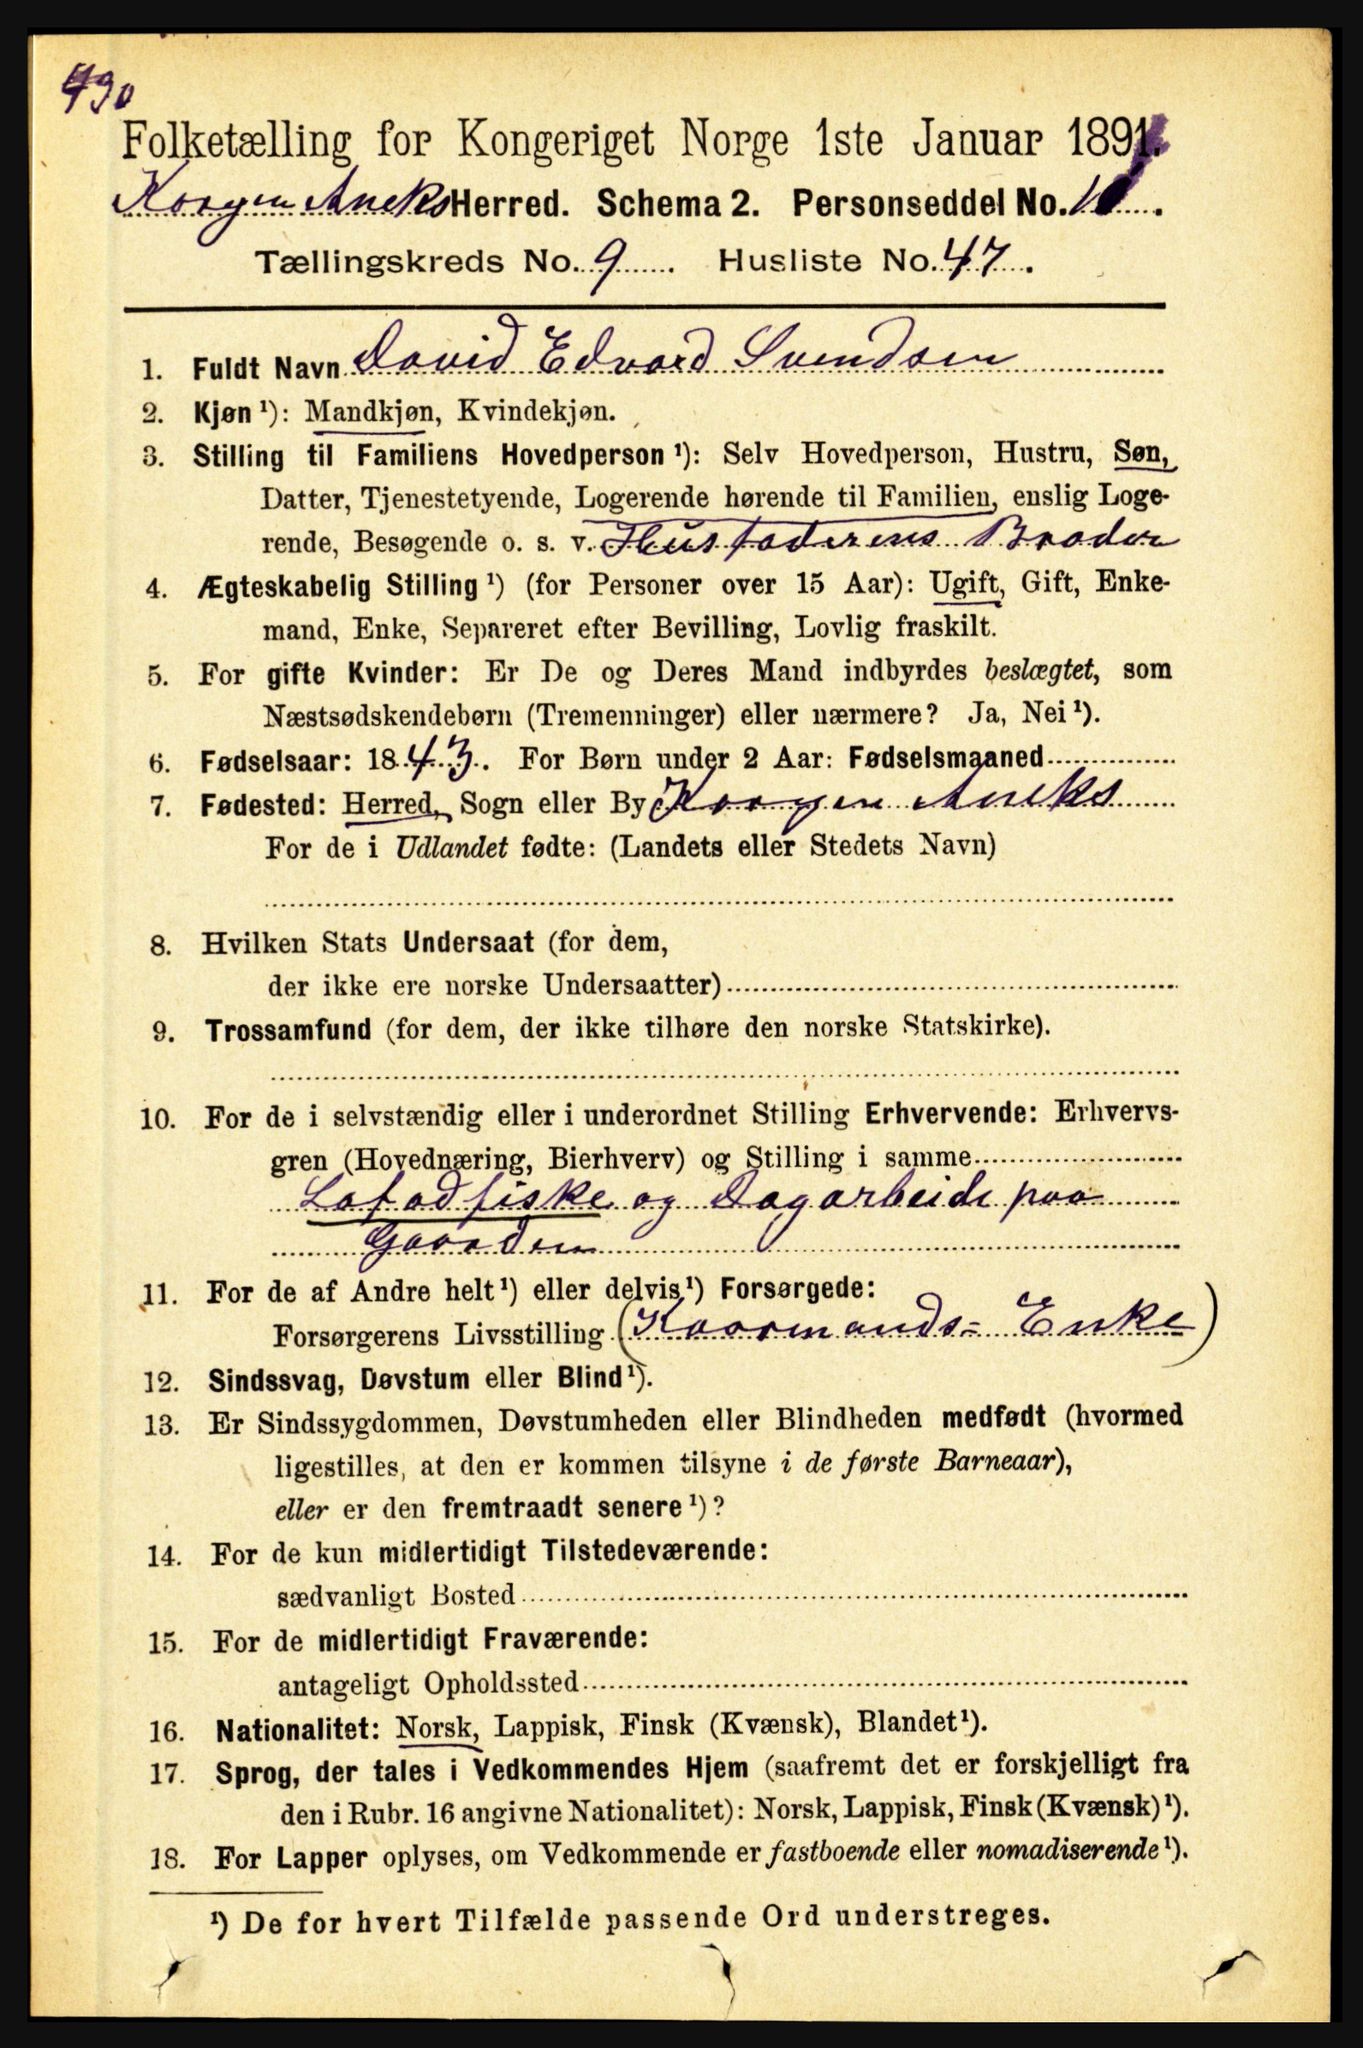 490
Folketælling for Kongeriget Norge 1ste Januar 1891.
Korgen Aneks Herred. Schema 2. Personseddel No. 10.
Tællingskreds No. 9. Husliste No. 47.
1. Fuldt Navn David Edvard Svendsen
2. Kjøn¹): Mandkjøn, Kvindekjøn.
3. Stilling til Familiens Hovedperson¹): Selv Hovedperson, Hustru, Søn,
Datter, Tjenestetyende, Logerende hørende til Familien, enslig Loge-
rende, Besøgende o. s. v. Husfaderens Broder
4. Ægteskabelig Stilling¹) (for Personer over 15 Aar): Ugift, Gift, Enke-
mand, Enke, Separeret efter Bevilling, Lovlig fraskilt.
5. For gifte Kvinder: Er De og Deres Mand indbyrdes beslægtet, som
Næstsødskendebørn (Tremenninger) eller nærmere? Ja, Nei¹).
6. Fødselsaar: 1843. For Børn under 2 Aar: Fødselsmaaned
7. Fødested: Herred, Sogn eller By Korgen Aneks
For de i Udlandet fødte: (Landets eller Stedets Navn)
8. Hvilken Stats Undersaat (for dem,
der ikke ere norske Undersaatter)
9. Trossamfund (for dem, der ikke tilhøre den norske Statskirke).
10. For de i selvstændig eller i underordnet Stilling Erhvervende: Erhvervs-
gren (Hovednæring, Bierhverv) og Stilling i samme
Lofodfiske og Dagarbeide paa
Gaarden
11. For de af Andre helt¹) eller delvis¹) Forsørgede:
Forsørgerens Livsstilling (Kaarmands= Enke)
12. Sindssvag, Døvstum eller Blind¹).
13. Er Sindssygdommen, Døvstumheden eller Blindheden medfødt (hvormed
ligestilles, at den er kommen tilsyne i de første Barneaar),
eller er den fremtraadt senere¹)?
14. For de kun midlertidigt Tilstedeværende:
sædvanligt Bosted
15. For de midlertidigt Fraværende:
antageligt Opholdssted
16. Nationalitet: Norsk, Lappisk, Finsk (Kvænsk), Blandet¹).
17. Sprog, der tales i Vedkommendes Hjem (saafremt det er forskjelligt fra
den i Rubr. 16 angivne Nationalitet): Norsk, Lappisk, Finsk (Kvænsk)¹).
18. For Lapper oplyses, om Vedkommende er fastboende eller nomadiserende¹).
¹) De for hvert Tilfælde passende Ord understreges.